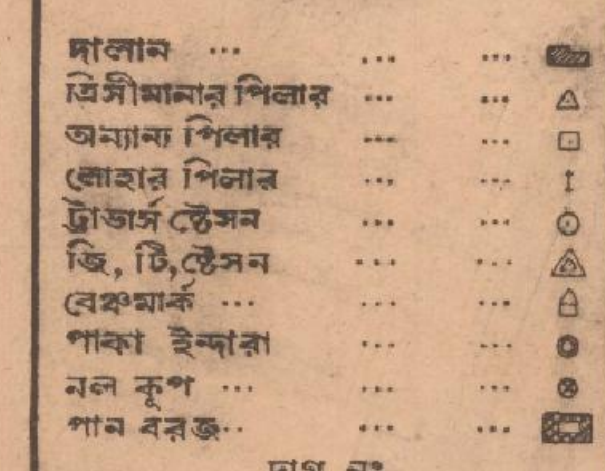 দালান ... ... ...
ত্রিসীমানার পিলার ... ...
অন্যান্য পিলার ... ...
লোহার পিলার ... ...
ট্রাভার্স ষ্টেসন ... ...
জি, টি, ষ্টেসন ... ...
বেঞ্চমার্ক ... ... ...
পাকা ইন্দারা ... ...
নল কূপ ... ... ...
পান বরজ... ... ...
দাগ নং